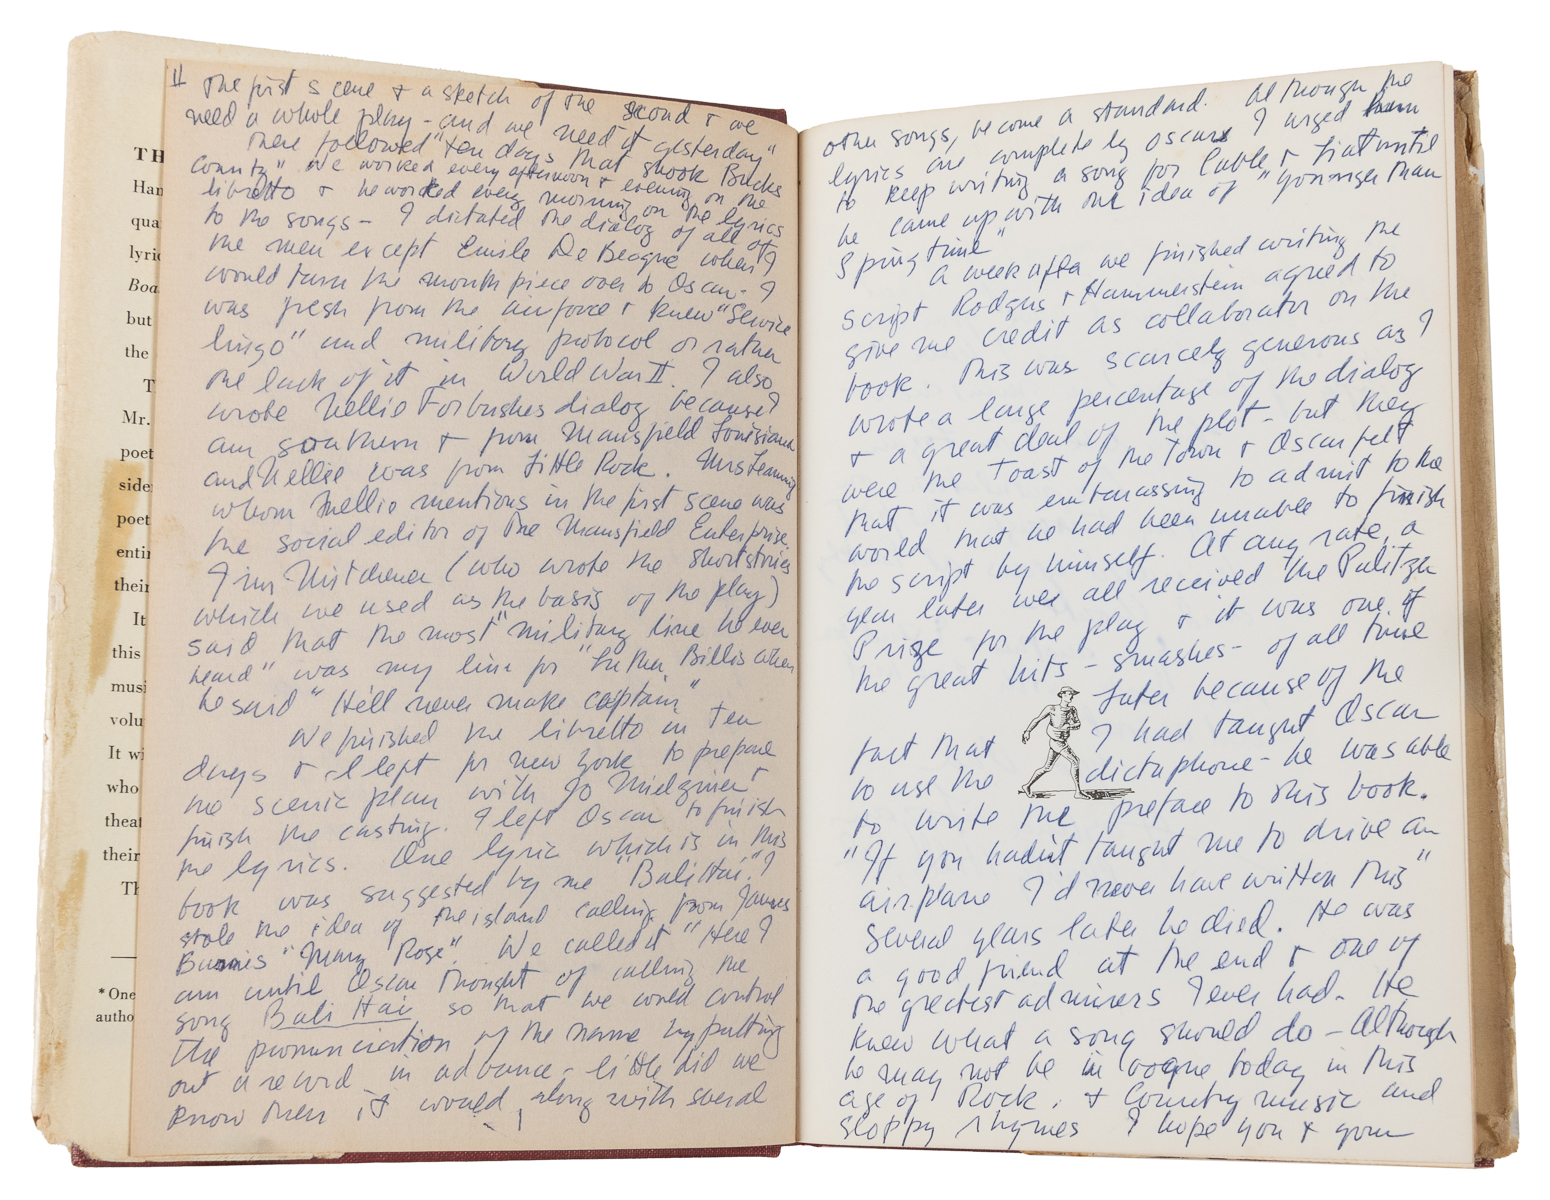 TH
Han
qua
lyric
Boa
but
the
T
Mr.
poet
side
poet
entir
their
It
this
musi
volu
It wi
who
theat
their
Th
*One
autho
II
The first scene + a sketch of the second + we
need a whole play - and we need it yesterday"
There followed "ten days that shook Bucks
County" We worked every afternoon + evening on the
libretto + he worked every morning on the lyrics
to the songs - I dictated the dialog of all of
the men except Emile De Becque when I
would turn the mouth piece over to Oscar. I
was fresh from the airforce + knew "Service
lingo" and military protocol or rather
the lack of it in World War II. I also
wrote Nellie Forbushes dialog because I
am southern + from Mansfield Louisiana
and Nellie was from Little Rock. Mrs Leeming
whom Nellie mentions in the first scene was
the social editor of the Mansfield Enterprise.
Jim Mitchener (who wrote the short stories
which we used as the basis of the play)
said that the most "military line he ever
heard" was my line for Luther Billis when
he said "He'll never make captain"
We finished the libretto in ten
days + I left for New York to prepare
the scenic plan with Jo Mielziner +
finish the casting. I left Oscar to finish
the lyrics. One lyric which is in this
book was suggested by me "Bali Hai". I
stole the idea of the island calling from James
Barries "Mary Rose". We called it "Here I
am until Oscar thought of calling the
song Bali Hai so that we could control
the pronunciation of the name by putting
out a record in advance - little did we
know then it would, along with several
other songs, become a standard. Although the
lyrics are complete by Oscar I urged him
to keep writing a song for Cable + Liat until
he came up with the idea of "Younger than
Springtime"
A week after we finished writing the
script Rodgers + Hammerstein agreed to
give me credit as collaborator on the
book. This was scarcely generous as I
wrote a large percentage of the dialog
+ a great deal of the plot - but they
were the Toast of the Town + Oscar felt
that it was embarassing to admit to the
world that he had been unable to finish
the script by himself. At any rate, a
year later we all received the Pulitzer
Prize for the play + it was one of
the great hits - smashes - of all time
Later because of the
fact that I had taught Oscar
to use the dictaphone - he was able
to write the preface to this book.
"If you hadn't taught me to drive an
airplane I'd never have written this"
Several years later he died. He was
a good friend at the end + one of
the greatest admirers I ever had. He
knew what a song should do - Although
he may not be in vogue today in this
age of Rock, + Country music and
sloppy rhymes I hope you + your